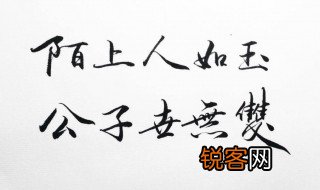 陌上人如玉
公子世無雙
锐客网